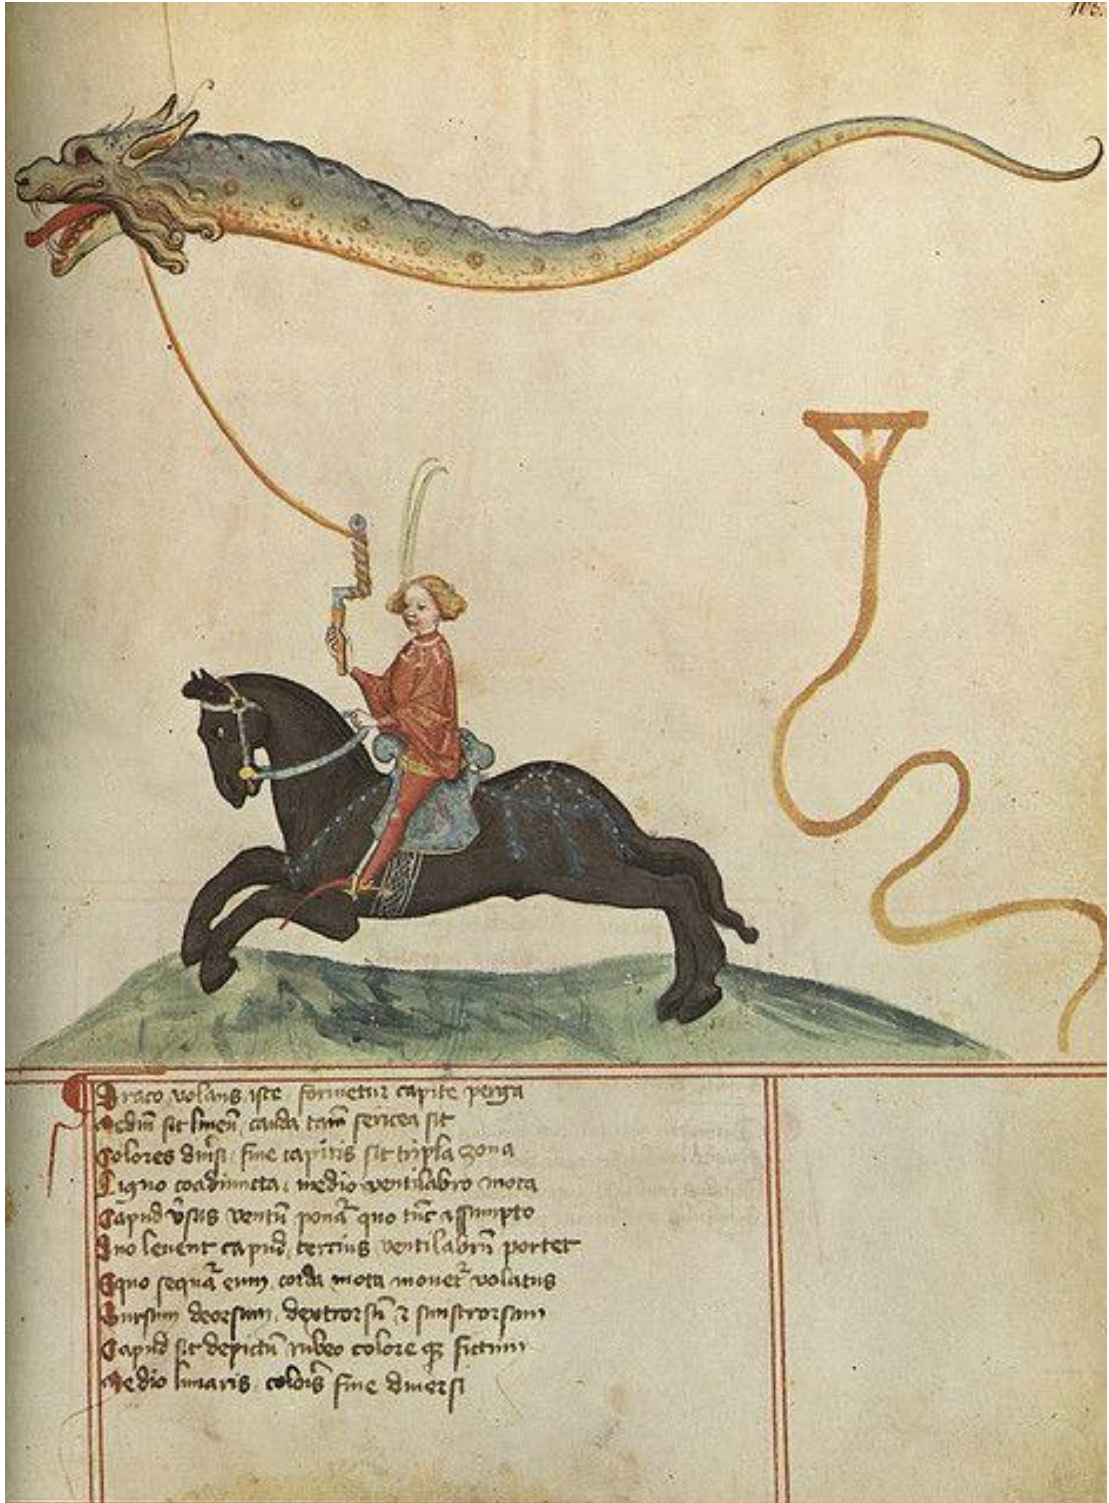 105.
Draco volans iste formetur capite perga
Mediũ sit lineũ, cauda tam̃ sericea sit
Colores diuersi, fine capitis sit tripla zona
Ligno coadiuncta, medio ventilabro mota
Capud versus ventũ ponat̃ quo tũc assumpto
Duo leuent capud, tercius ventilabrũ portet
Equo sequat̃ eum, corda mota mouet̃ volatus
Sursum deorsum, dextrorsũ & sinistrorsum
Capud sit depictũ rubeo colore qꝫ fictum
Medio lunaris, coloris fine diuersi